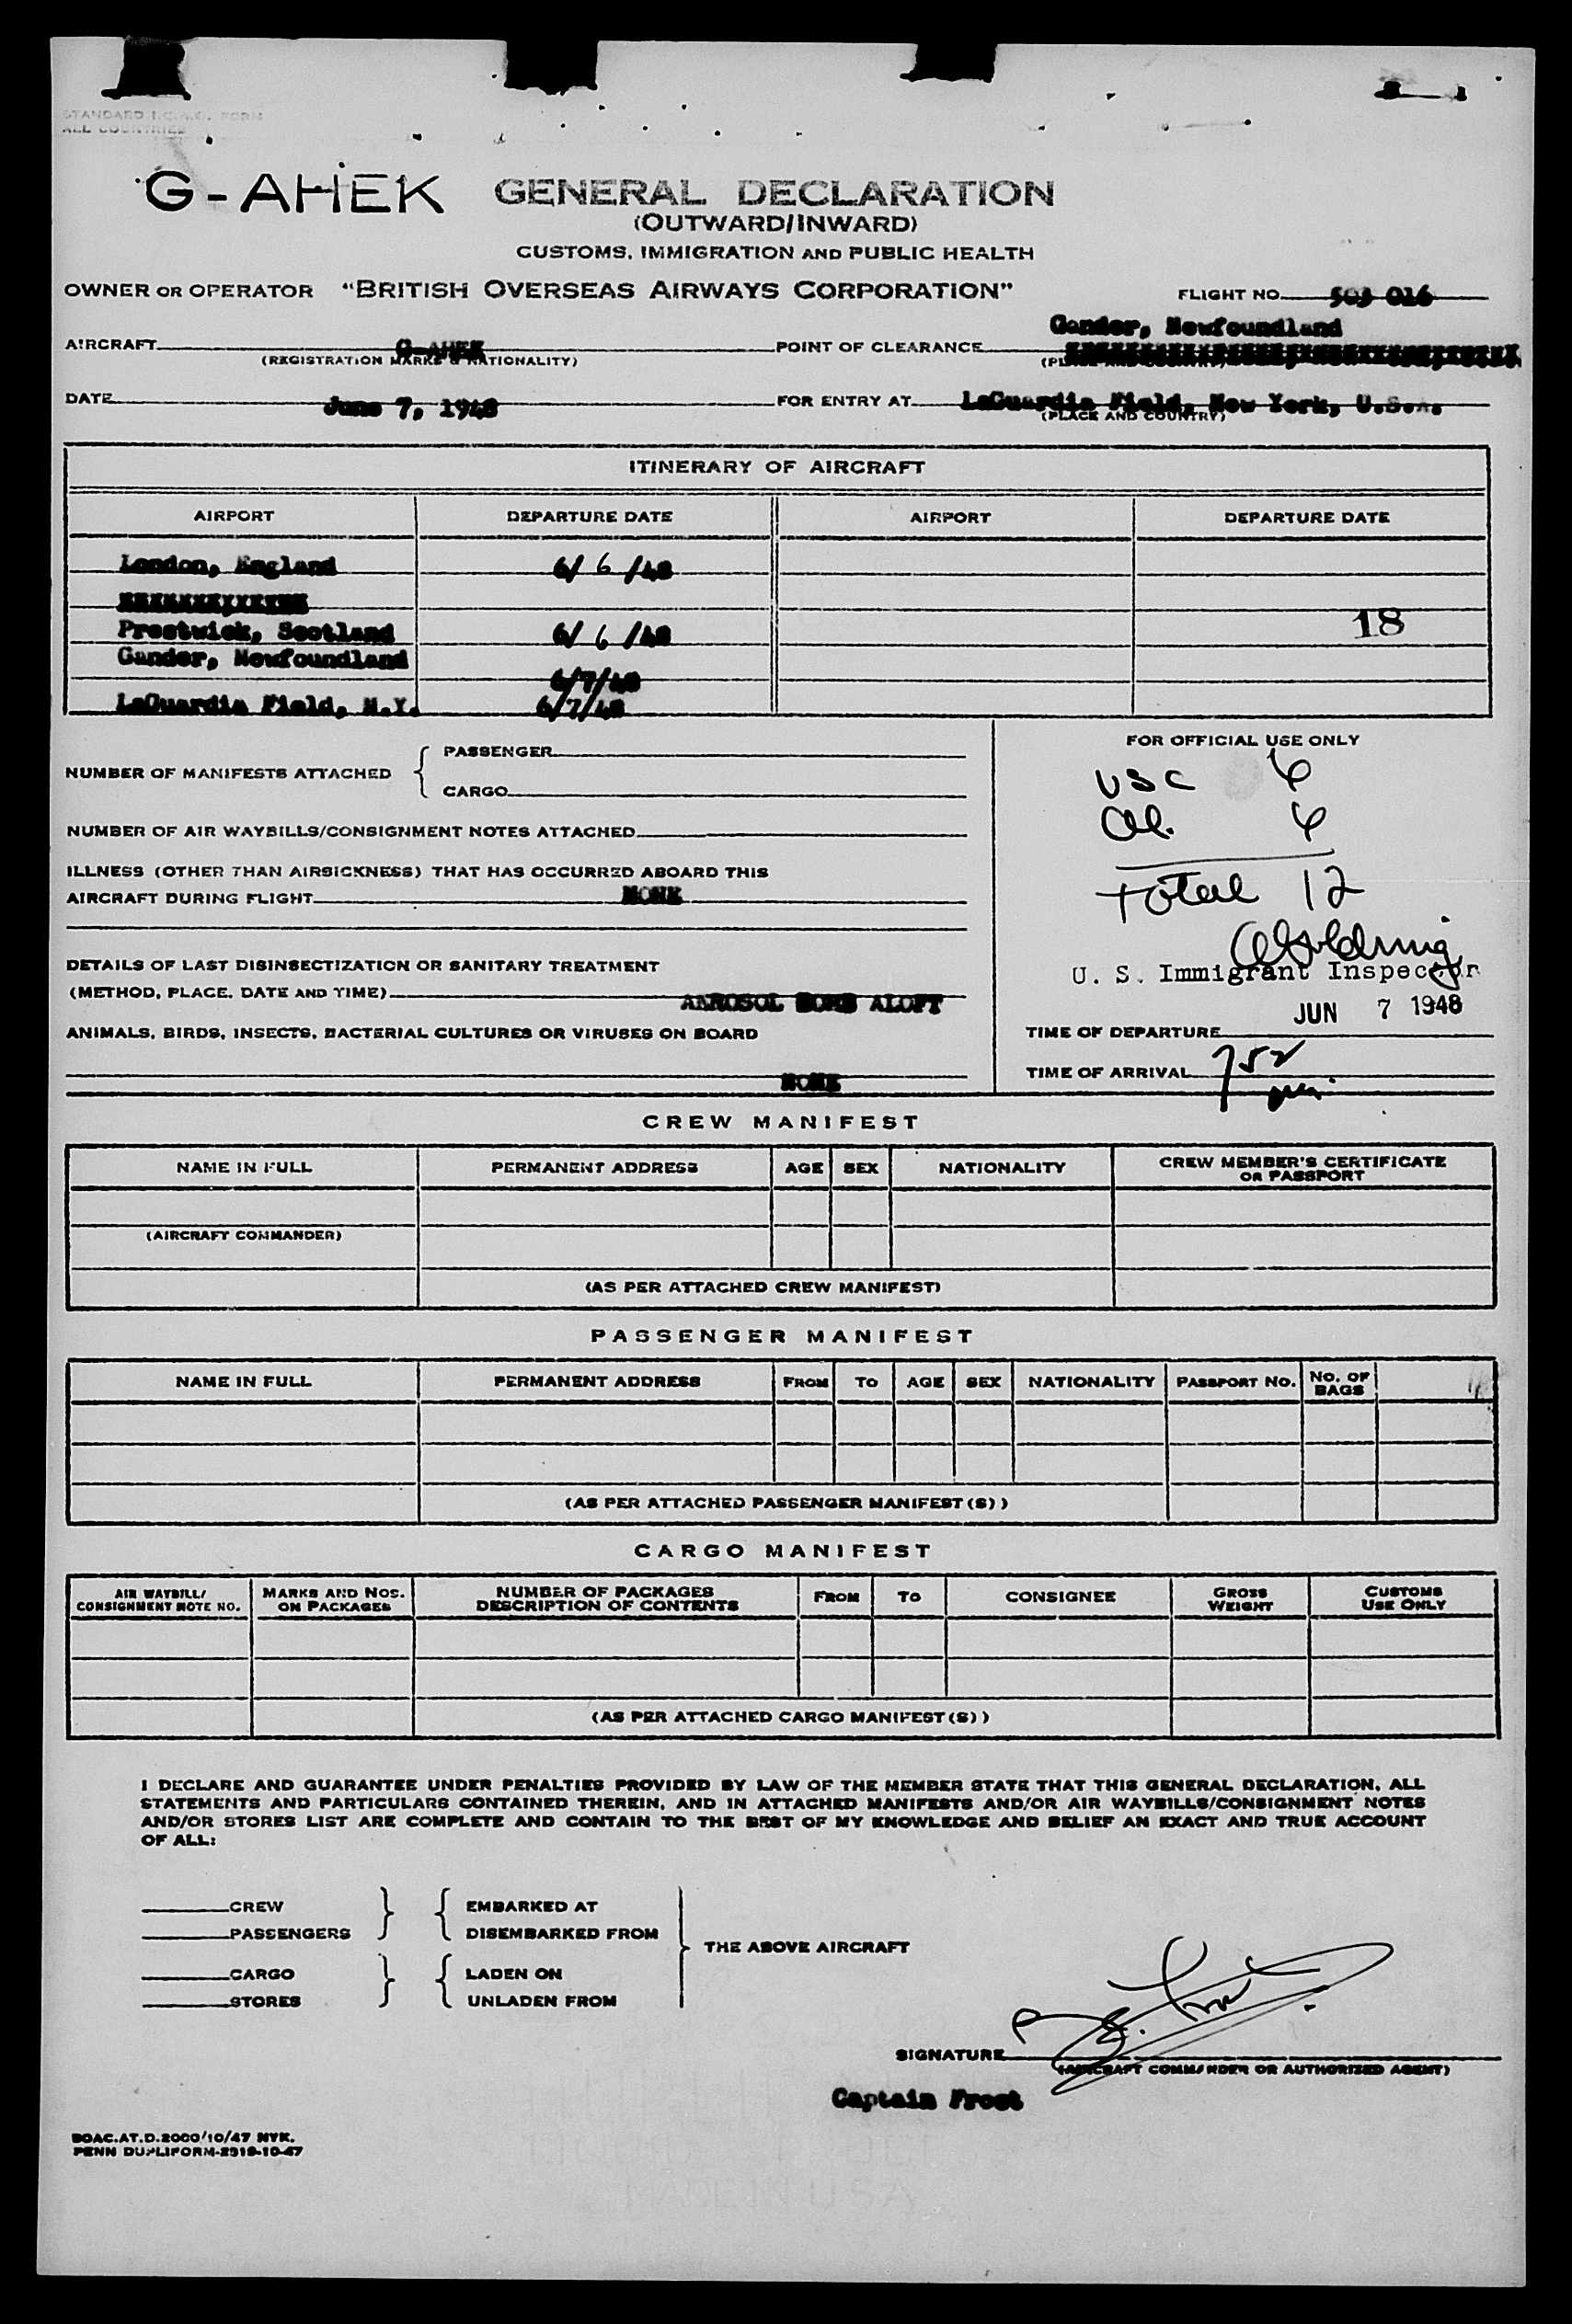 STANDARD I.C.A.O. FORM
ALL COUNTRIES
G-AHEK GENERAL DECLARATION
(OUTWARD/INWARD)
CUSTOMS, IMMIGRATION AND PUBLIC HEALTH
OWNER OR OPERATOR "BRITISH OVERSEAS AIRWAYS CORPORATION" FLIGHT NO. 503 016
Gander, Newfoundland
AIRCRAFT G-AHEK POINT OF CLEARANCE
(REGISTRATION MARKS & NATIONALITY) (PLACE AND COUNTRY)
DATE June 7, 1948 FOR ENTRY AT LaGuardia Field, New York, U.S.A.
(PLACE AND COUNTRY)
ITINERARY OF AIRCRAFT
AIRPORT DEPARTURE DATE AIRPORT DEPARTURE DATE
London, England 6/ 6 /48
Prestwick, Scotland 6/ 6 /48 18
Gander, Newfoundland
6/7/48
LaGuardia Field, N.Y. 6/7/48
FOR OFFICIAL USE ONLY
NUMBER OF MANIFESTS ATTACHED PASSENGER
CARGO
USC 6
Al. 6
NUMBER OF AIR WAYBILLS/CONSIGNMENT NOTES ATTACHED
ILLNESS (OTHER THAN AIRSICKNESS) THAT HAS OCCURRED ABOARD THIS
AIRCRAFT DURING FLIGHT NONE
Total 12
DETAILS OF LAST DISINSECTIZATION OR SANITARY TREATMENT
U. S. Immigrant Inspector
(METHOD, PLACE, DATE AND TIME) AEROSOL BOMB ALOFT
JUN 7 1948
ANIMALS, BIRDS, INSECTS, BACTERIAL CULTURES OR VIRUSES ON BOARD
TIME OF DEPARTURE
NONE
TIME OF ARRIVAL 752
CREW MANIFEST
NAME IN FULL PERMANENT ADDRESS AGE SEX NATIONALITY CREW MEMBER'S CERTIFICATE
OR PASSPORT
(AIRCRAFT COMMANDER)
(AS PER ATTACHED CREW MANIFEST)
PASSENGER MANIFEST
NAME IN FULL PERMANENT ADDRESS FROM TO AGE SEX NATIONALITY PASSPORT NO. NO. OF
BAGS
(AS PER ATTACHED PASSENGER MANIFEST (S) )
CARGO MANIFEST
AIR WAYBILL/ MARKS AND NOS. NUMBER OF PACKAGES FROM TO CONSIGNEE GROSS CUSTOMS
CONSIGNMENT NOTE NO. ON PACKAGES DESCRIPTION OF CONTENTS WEIGHT USE ONLY
(AS PER ATTACHED CARGO MANIFEST (S) )
I DECLARE AND GUARANTEE UNDER PENALTIES PROVIDED BY LAW OF THE MEMBER STATE THAT THIS GENERAL DECLARATION, ALL
STATEMENTS AND PARTICULARS CONTAINED THEREIN, AND IN ATTACHED MANIFESTS AND/OR AIR WAYBILLS/CONSIGNMENT NOTES
AND/OR STORES LIST ARE COMPLETE AND CONTAIN TO THE BEST OF MY KNOWLEDGE AND BELIEF AN EXACT AND TRUE ACCOUNT
OF ALL:
CREW EMBARKED AT
PASSENGERS DISEMBARKED FROM
THE ABOVE AIRCRAFT
CARGO LADEN ON
STORES UNLADEN FROM
SIGNATURE
(AIRCRAFT COMMANDER OR AUTHORIZED AGENT)
Captain Frost
BOAC.AT.D.2000/10/47 NYK.
PENN DUPLIFORM-2919-10-47
MADE IN USA